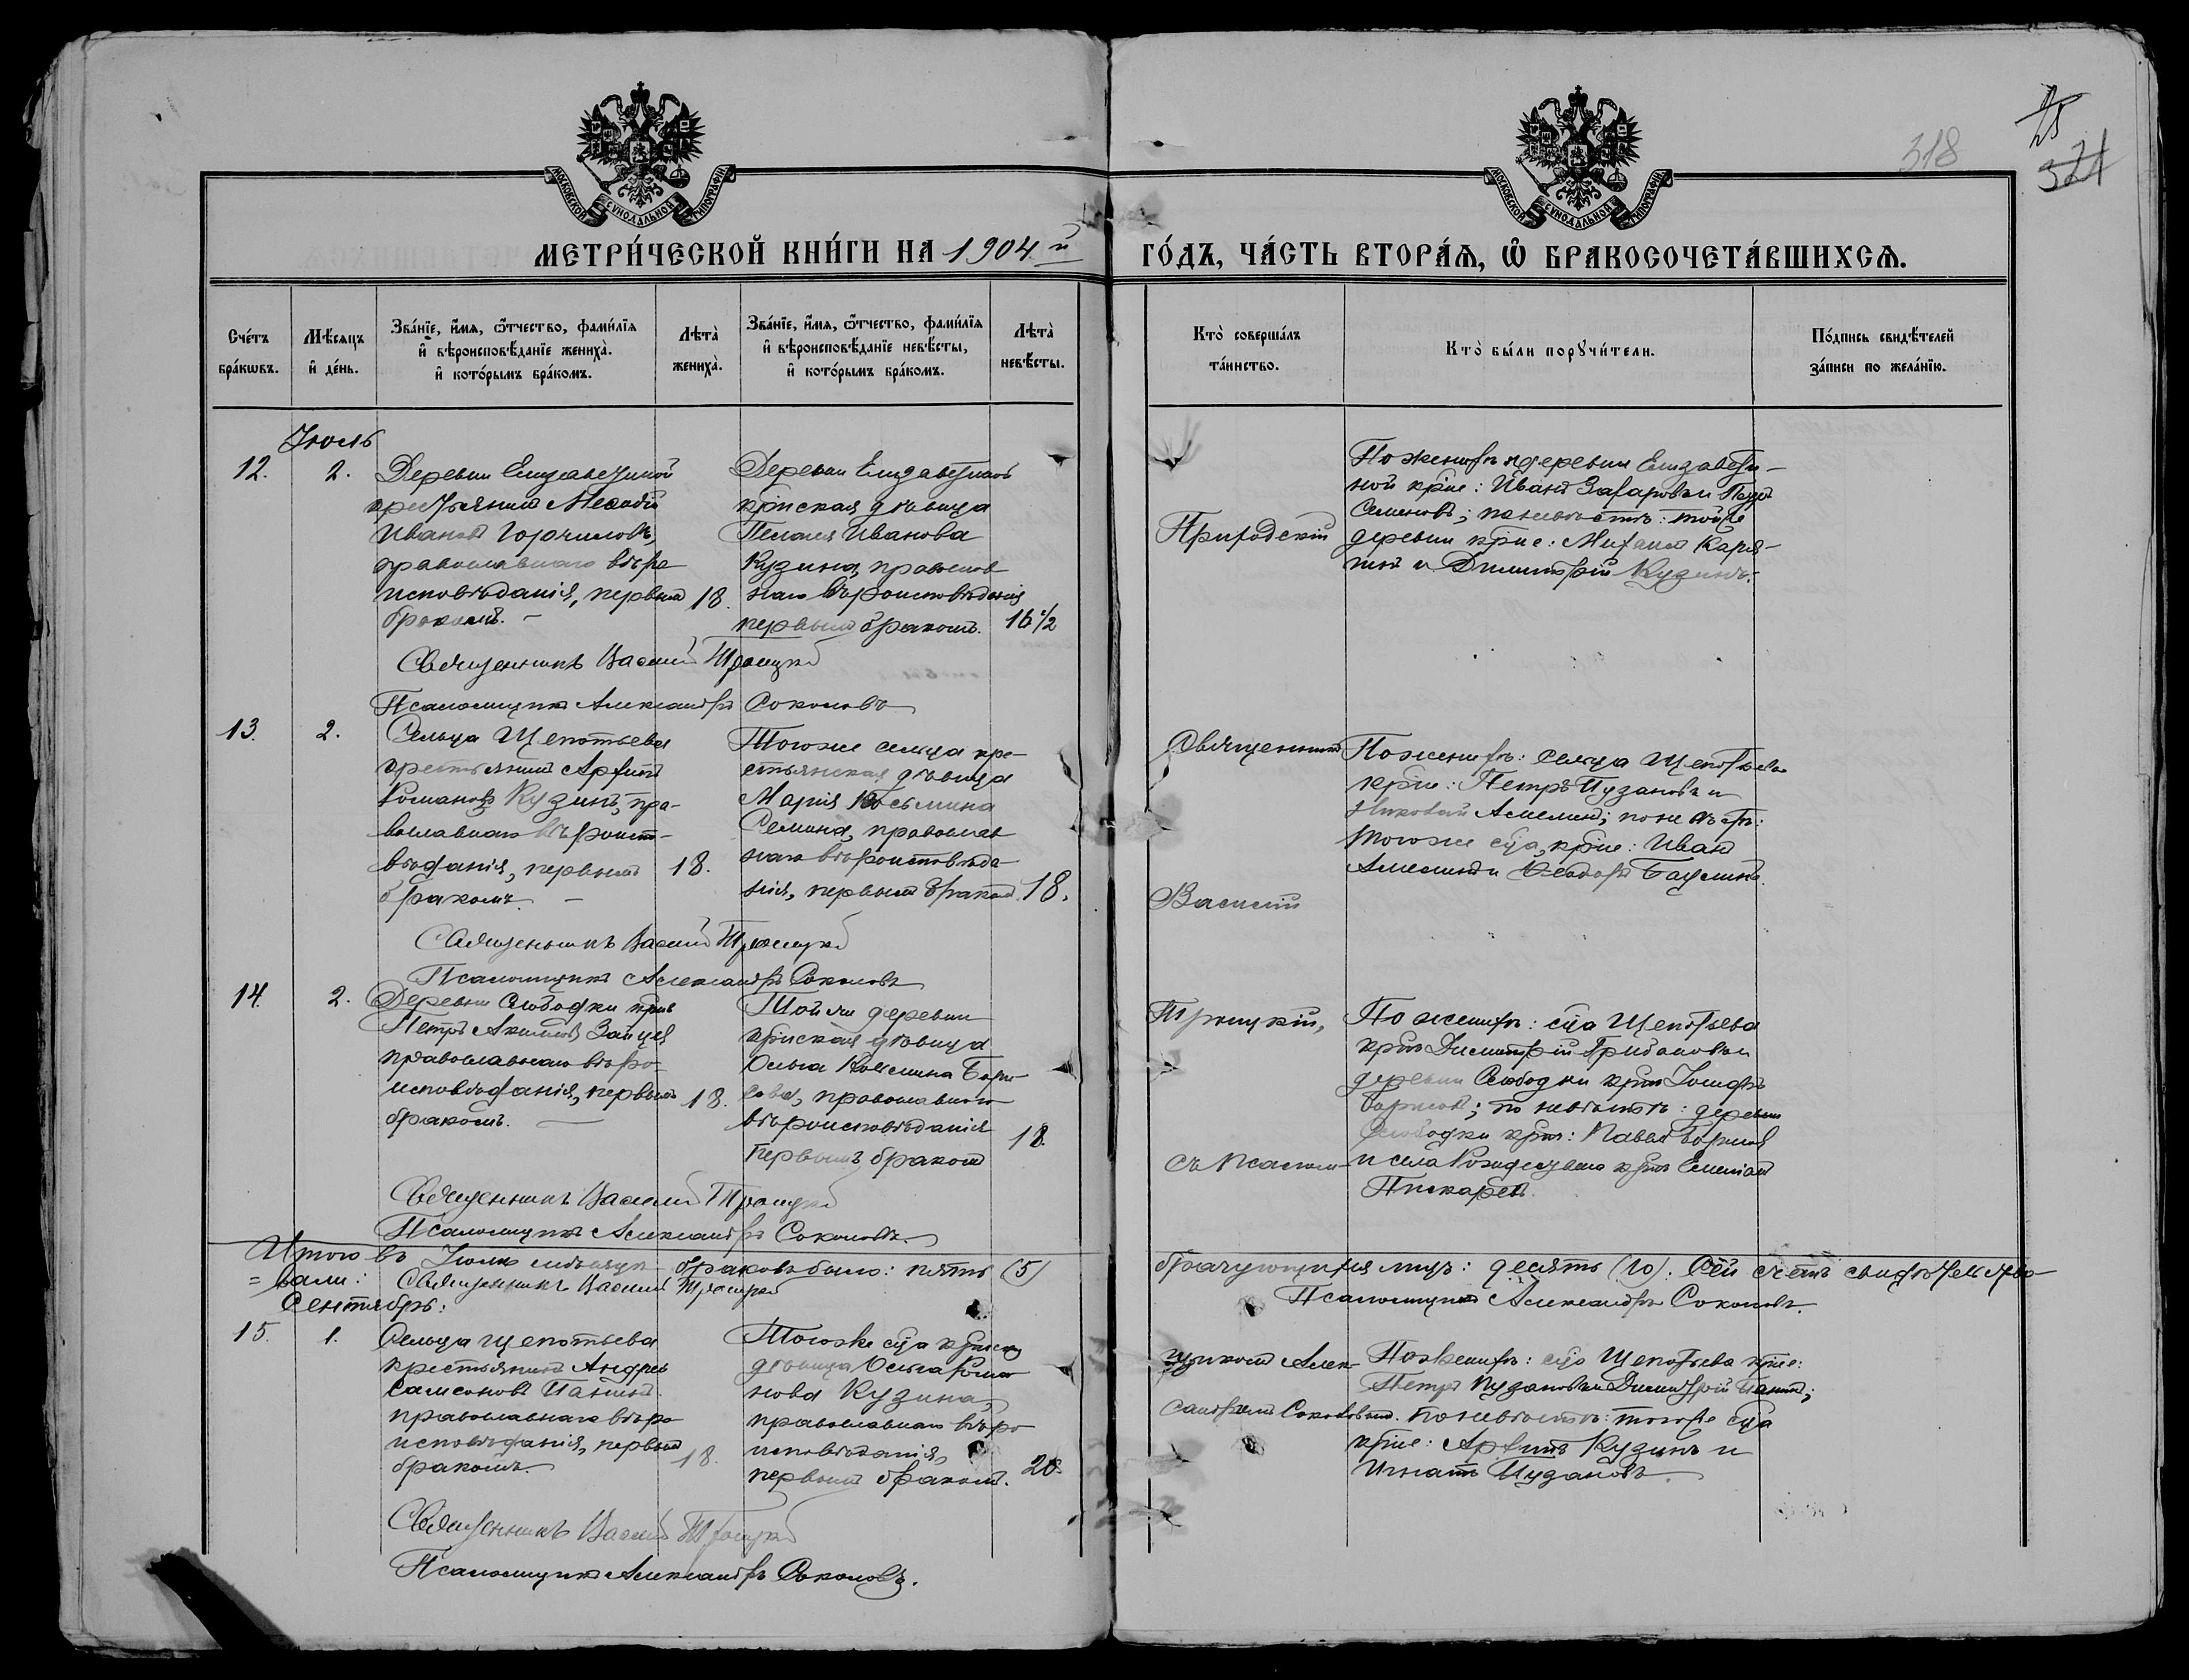 318
25
321
МОСКОВСКОЙ СѴНОДАЛЬНОЙ ТИПОГРАФІИ
МОСКОВСКОЙ СѴНОДАЛЬНОЙ ТИПОГРАФІИ
МЕТРИ́ЧЕСКОЙ КНИ́ГИ НА 1904 й ГО́ДЪ, ЧА́СТЬ ВТОРА́Ѧ, Ѽ БРАКОСОЧЕТА́ВШИХСѦ.
Сче́тъ бра́кѡвъ.
Мѣ́сѧцъ и҆ де́нь.
Зва́нїе, и҆́мѧ, ѻ҆́тчество, фами́лїѧ и҆ вѣроисповѣ́данїе жениха̀. и҆ кото́рымъ бра́комъ.
Лѣта̀ жениха̀.
Зва́нїе, и҆́мѧ, ѻ҆́тчество, фами́лїѧ и҆ вѣроисповѣ́данїе невѣ́сты, и҆ кото́рымъ бра́комъ.
Лѣта̀ невѣ́сты.
Кто̀ соверша́лъ та́инство.
Кто̀ бы́ли порꙋчи́тели.
По́дпись свидѣ́телей за́писи по жела́нїю.
Іюль
12.
2.
Деревни Елизаветиной
крестьянинъ
Ивановъ Горчиловъ,
православнаго вѣро
исповѣданія, первымъ
бракомъ.
18.
Деревни Елизаветиной
крнская дѣвица
Пелагея Иванова
Кузина, православ
наго вѣроисповѣданія
первымъ бракомъ.
16 1/2
Приходскій
По женихѣ деревни Елизавети-
ной крне: Иванъ Захаровъ и Петръ
Семеновъ; по невѣстѣ: тойже
деревни крне: Михаилъ Каря-
кинъ и Димитрій Кузинъ.
Священникъ Василій Троицкій
Псаломщикъ Александръ Соколовъ
13.
2.
Сельца Щепотьева
крестьянинъ Архипъ
Романовъ Кузинъ, пра-
вославнаго вѣроиспо-
вѣданія, первымъ
бракомъ.
18.
Тогоже сельца кре-
стьянская дѣвица
Марія Косьмина
Семина, православ
наго вѣроисповѣда
нія, первымъ бракомъ
18.
Священникъ
Василій
По женихѣ: сельца Щепотьева
крне: Петръ Пузановъ и
Николай Алешинъ; по невѣстѣ:
тогоже сца, крне: Иванъ
Алешинъ и Ѳеодоръ
Священникъ Василій Троицкій
Псаломщикъ Александръ Соколовъ
14.
2.
Деревни Слободки крнъ
Петръ Акимовъ Зайцевъ
православнаго вѣро-
исповѣданія, первымъ
бракомъ.
18.
Той же деревни
крнская дѣвица
Ольга Косьмина Бори-
сова, православнаго
вѣроисповѣданія
первымъ бракомъ
18.
Троицкій,
съ псалом-
По женихѣ: сца Щепотьева
крнъ Димитрій Грибановъ и
деревни Слободки крнъ Іосифъ
Борисовъ; по невѣстѣ: деревни
Слободки крнъ: Павелъ Борисовъ
и села Рождествена крнъ Емеліанъ
Пискаревъ.
Священникъ Василій Троицкій
Псаломщикъ Александръ Соколовъ.
Итого въ Іюлѣ мѣсяцѣ браковъ было: пять (5) брачующихся лицъ: десять (10). Сей счетъ свидѣтельство-
=вали: Священникъ Василій Троицкій Псаломщикъ Александръ Соколовъ.
Сентябрь:
15.
1.
Сельца Щепотьева
крестьянинъ Андрей
Самсоновъ Панинъ
православнаго вѣро
исповѣданія, первымъ
бракомъ.
18.
Тогоже сца крнская
дѣвица Ольга Рома
нова Кузина,
православнаго вѣро
исповѣданія,
первымъ бракомъ.
20.
щикомъ Алек-
сандромъ Соколовымъ.
По женихѣ: сца Щепотьева крне:
Петръ Пузановъ и Димитрій Панинъ;
по невѣстѣ: тогоже сца
крне: Архипъ Кузинъ и
Игнатъ Пузановъ.
Священникъ Василій Троицкій
Псаломщикъ Александръ Соколовъ.